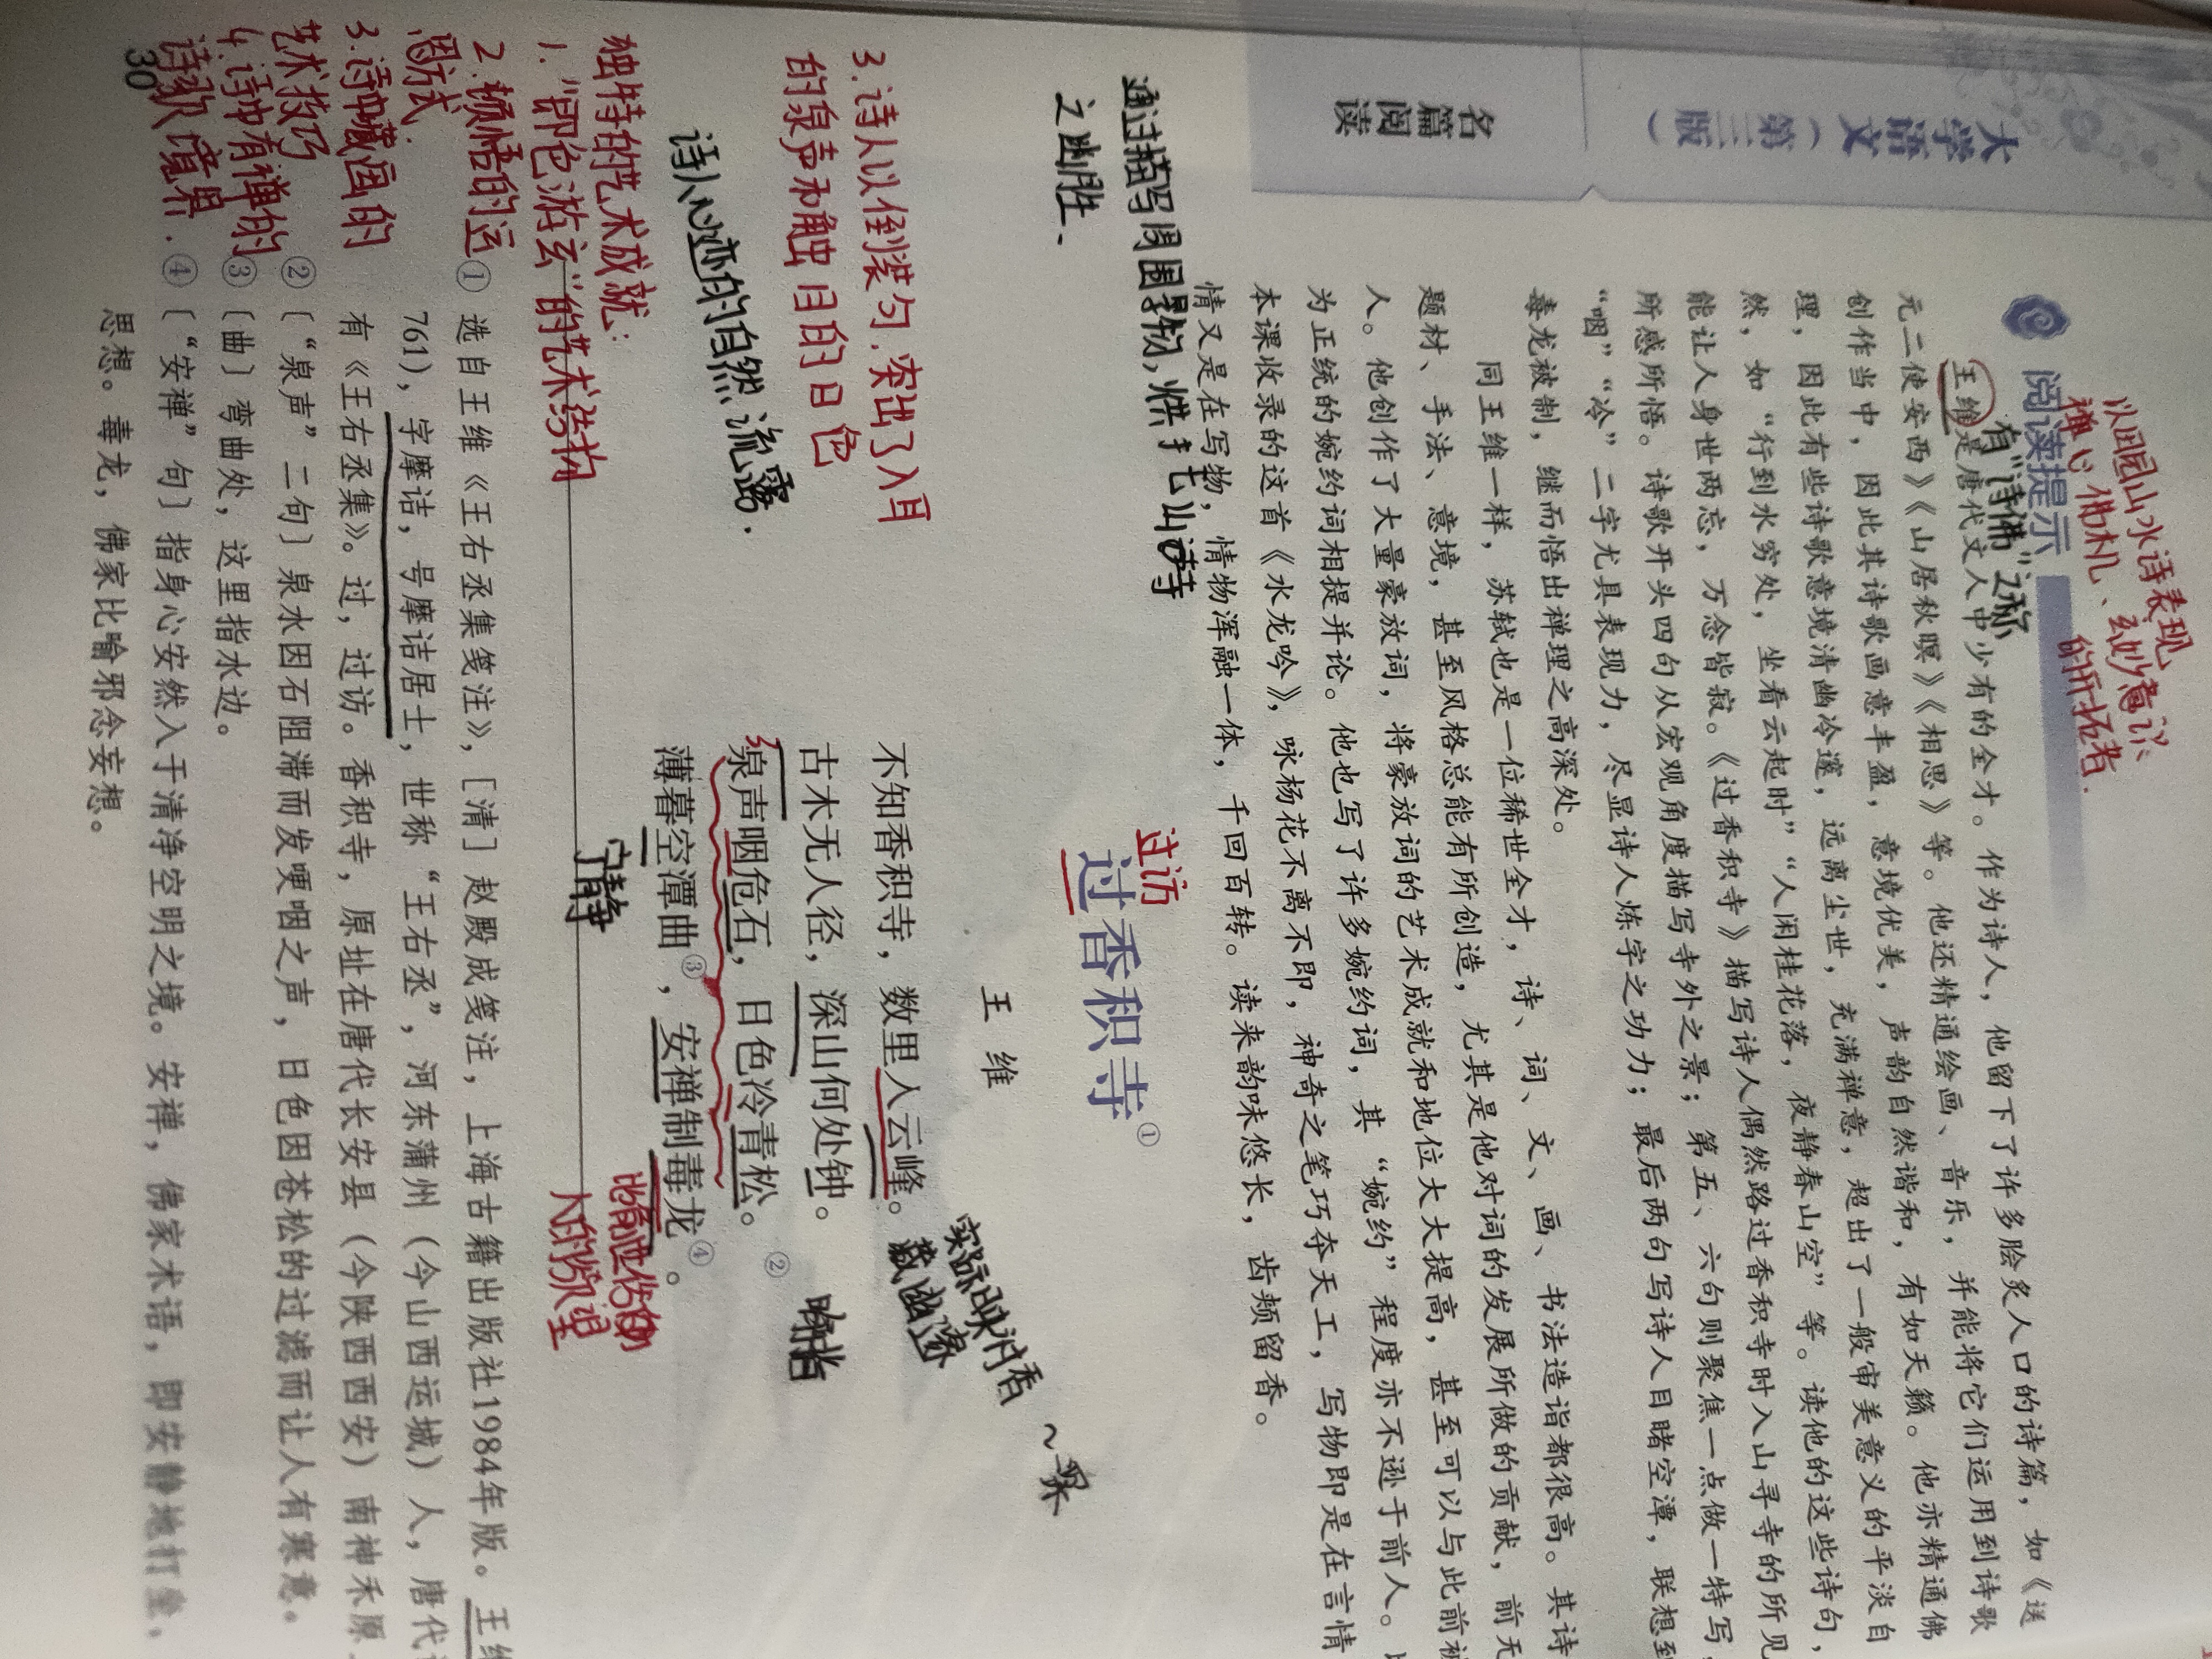 大学语文（第三版）
名篇阅读
以田园山水诗表现
禅心佛机、玄妙意识
的开拓者.
阅读提示
有“诗佛”之称
王维是唐代文人中少有的全才。作为诗人，他留下了许多脍炙人口的诗篇，如《送
元二使安西》《山居秋暝》《相思》等。他还精通绘画、音乐，并能将它们运用到诗歌
创作当中，因此其诗歌画意丰盈，意境优美，声韵自然谐和，有如天籁。他亦精通佛
理，因此有些诗歌意境清幽冷邃，远离尘世，充满禅意，超出了一般审美意义的平淡自
然，如“行到水穷处，坐看云起时”“人闲桂花落，夜静春山空”等。读他的这些诗句，
能让人身世两忘，万念皆寂。《过香积寺》描写诗人偶然路过香积寺时入山寻寺的所见
所感所悟。诗歌开头四句从宏观角度描写寺外之景；第五、六句则聚焦一点做一特写，
“咽”“冷”二字尤具表现力，尽显诗人炼字之功力；最后两句写诗人目睹空潭，联想到
毒龙被制，继而悟出禅理之高深处。
同王维一样，苏轼也是一位稀世全才，诗、词、文、画、书法造诣都很高。其诗
题材、手法、意境，甚至风格总能有所创造，尤其是他对词的发展所做的贡献，前无
人。他创作了大量豪放词，将豪放词的艺术成就和地位大大提高，甚至可以与此前被
为正统的婉约词相提并论。他也写了许多婉约词，其“婉约”程度亦不逊于前人。
本课收录的这首《水龙吟》，咏杨花不离不即，神奇之笔巧夺天工，写物即是在言情
情又是在写物，情物浑融一体，千回百转。读来韵味悠长，齿颊留香。
通过描写周围景物,烘托山寺
之幽胜.
过访
过香积寺①
王 维
不知香积寺，数里入云峰。
古木无人径，深山何处钟。
泉声咽危石，日色冷青松。②
薄暮空潭曲③，安禅制毒龙④。
实际映衬香
藏幽邃
～深
宁静
比喻世俗
人的欲望
3.诗人以倒装句.突出了入耳
的泉声和触目的日色
诗人心迹的自然流露.
独特的艺术成就：
1.“即色游玄”的艺术结构
2.顿悟的运
思方式.
3.诗中藏画的
艺术技巧
4.诗中有禅的
诗歌境界.
① 选自王维《王右丞集笺注》，[清] 赵殿成笺注，上海古籍出版社1984年版。王维
761），字摩诘，号摩诘居士，世称“王右丞”，河东蒲州（今山西运城）人，唐代
有《王右丞集》。过，过访。香积寺，原址在唐代长安县（今陕西西安）南神禾原
②〔“泉声”二句〕泉水因石阻滞而发哽咽之声，日色因苍松的过滤而让人有寒意。
③〔曲〕弯曲处，这里指水边。
④〔“安禅”句〕指身心安然入于清净空明之境。安禅，佛家术语，即安静地打坐，
思想。毒龙，佛家比喻邪念妄想。
30